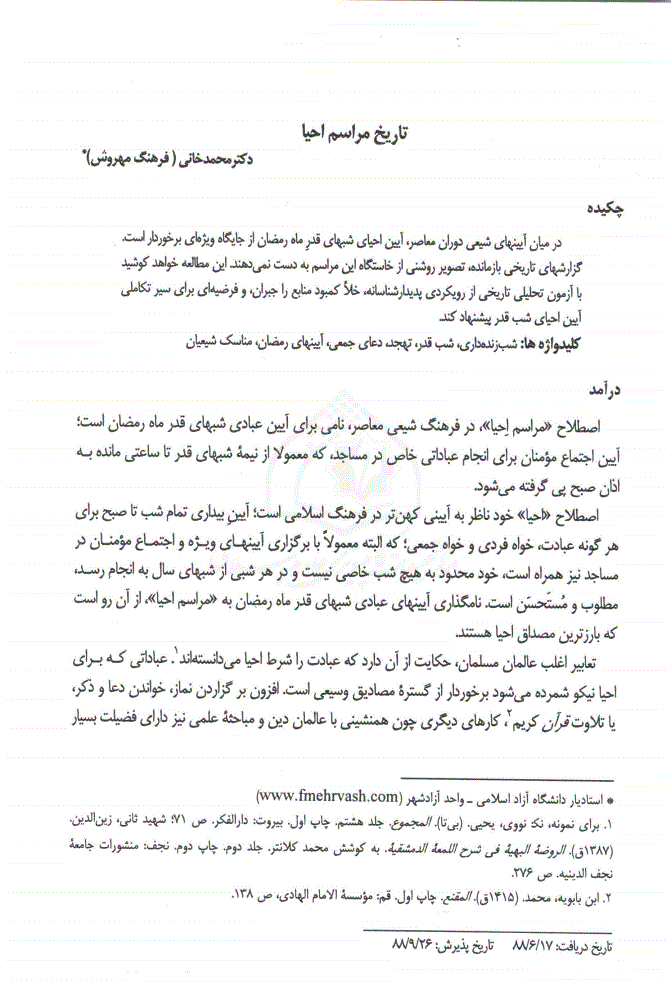 تاریخ مراسم احیا
دکترمحمدخانی ( فرهنگ مهروش)*
چکیده
در میان آیینهای شیعی دوران معاصر، آیین احیای شبهای قدر ماه رمضان از جایگاه ویژه‌ای برخوردار است.
گزارشهای تاریخی بازمانده، تصویر روشنی از خاستگاه این مراسم به دست نمی‌دهند. این مطالعه خواهد کوشید
با آزمون تحلیلی تاریخی از رویکردی پدیدارشناسانه، خلأ کمبود منابع را جبران، و فرضیه‌ای برای سیر تکاملی
آیین احیای شب قدر پیشنهاد کند.
کلیدواژه ها: شب‌زنده‌داری، شب قدر، تهجد، دعای جمعی، آیینهای رمضان، مناسک شیعیان
درآمد
اصطلاح «مراسم اِحیا»، در فرهنگ شیعی معاصر، نامی برای آیین عبادی شبهای قدر ماه رمضان است؛
آیین اجتماع مؤمنان برای انجام عباداتی خاص در مساجد، که معمولا از نیمهٔ شبهای قدر تا ساعتی مانده به
اذان صبح پی گرفته می‌شود.
اصطلاح «احیا» خود ناظر به آیینی کهن‌تر در فرهنگ اسلامی است؛ آیینِ بیداری تمام شب تا صبح برای
هر گونه عبادت، خواه فردی و خواه جمعی؛ که البته معمولاً با برگزاری آیینهای ویژه و اجتماع مؤمنان در
مساجد نیز همراه است، خود محدود به هیچ شب خاصی نیست و در هر شبی از شبهای سال به انجام رسد،
مطلوب و مُستَحسَن است. نامگذاری آیینهای عبادی شبهای قدر ماه رمضان به «مراسم احیا»، از آن رو است
که بارزترین مصداق احیا هستند.
تعابیر اغلب عالمان مسلمان، حکایت از آن دارد که عبادت را شرط احیا می‌دانسته‌اند۱. عباداتی که برای
احیا نیکو شمرده می‌شود برخوردار از گسترهٔ مصادیق وسیعی است. افزون بر گزاردن نماز، خواندن دعا و ذکر،
یا تلاوت قرآن کریم۲، کارهای دیگری چون همنشینی با عالمان دین و مباحثهٔ علمی نیز دارای فضیلت بسیار
* استادیار دانشگاه آزاد اسلامی ـ واحد آزادشهر (www.fmehrvash.com)
۱. برای نمونه، نک نووی، یحیی. (بی‌تا). المجموع. جلد هشتم. چاپ اول. بیروت: دارالفکر. ص ۷۱؛ شهید ثانی، زین‌الدین.
(۱۳۸۷ق). الروضة البهیة فی شرح اللمعة الدمشقیة. به کوشش محمد کلانتر. جلد دوم. چاپ دوم. نجف: منشورات جامعة
نجف الدینیه. ص ۲۷۶.
۲. ابن بابویه، محمد. (۱۴۱۵ق). المقنع. چاپ اول. قم: مؤسسة الامام الهادی، ص ۱۳۸.
تاریخ دریافت: ۸۸/۶/۱۷ تاریخ پذیرش: ۸۸/۹/۲۶